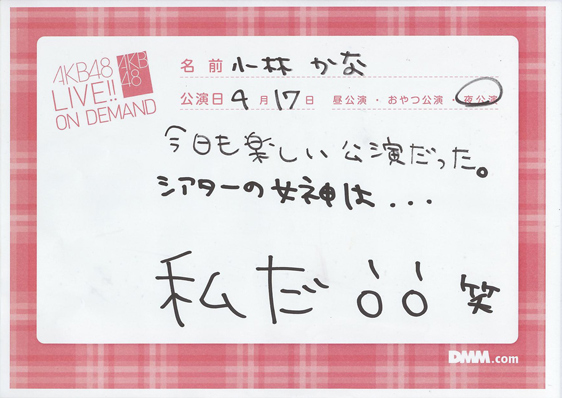 AKB48
LIVE!!
ON DEMAND
AKB
48
名前 小林 かな
公演日 4月17日 昼公演・おやつ公演・夜公演
今日も楽しい公演だった。
シアターの女神は...
私だ 笑
DMM.com